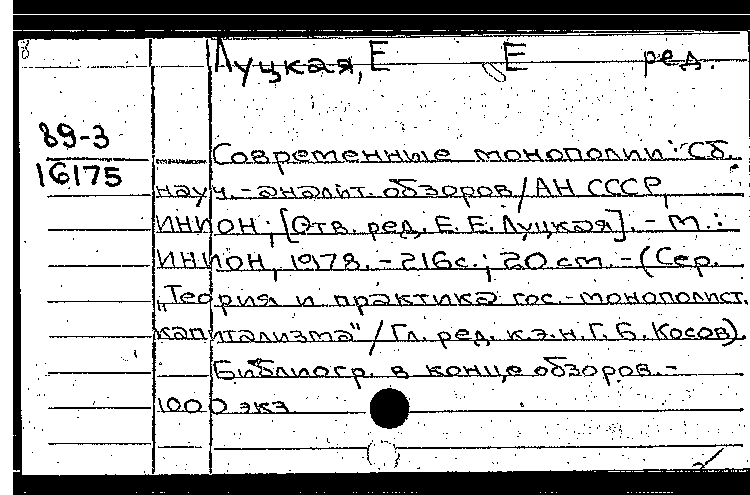 Луцкая, Е Е ред.
89-3
16175
Современные монополии: Сб.
науч.-аналит. обзоров / АН СССР,
ИНИОН; [Отв. ред. Е. Е. Луцкая]. - М.:
ИНИОН, 1978. - 216 с.; 20 cm. - (Сер.
„Теория и практика гос.-монополист.
капитализма" / Гл. ред. к.э.н. Г. Б. Косов).
Библиогр. в конце обзоров. -
1000 экз